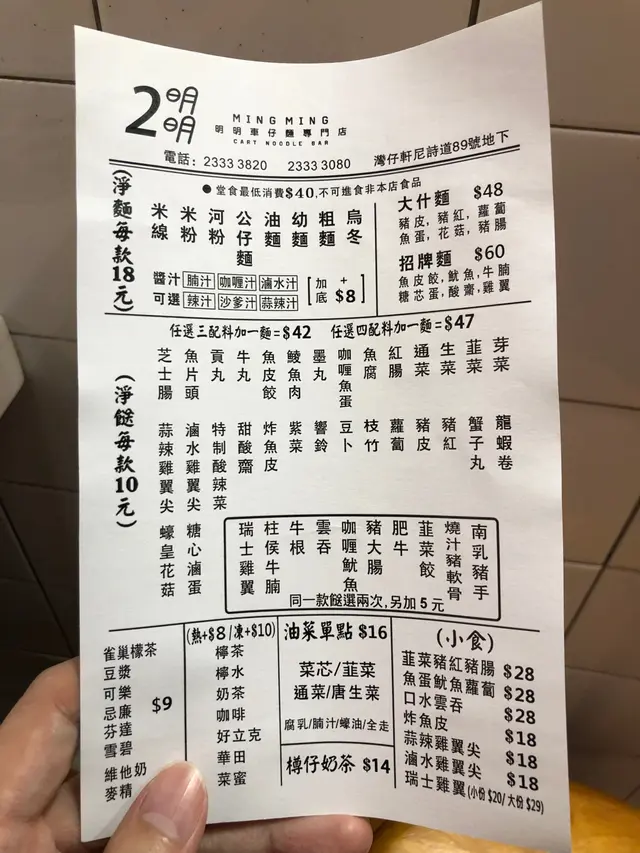 2明明
MING MING
明明車仔麵專門店
CART NOODLE BAR
電話: 2333 3820 2333 3080 灣仔軒尼詩道89號地下
● 堂食最低消費$40,不可進食非本店食品
(淨麵每款18元)
米線
米粉
河粉
公仔麵
油麵
幼麵
粗麵
烏冬
醬汁可選
腩汁 咖喱汁 滷水汁
辣汁 沙爹汁 蒜辣汁
[加底+$8]
大什麵 $48
豬皮, 豬紅, 蘿蔔
魚蛋, 花菇, 豬腸
招牌麵 $60
魚皮餃, 魷魚, 牛腩
糖芯蛋, 酸齋, 雞翼
任選三配料加一麵=$42 任選四配料加一麵=$47
(淨餸每款10元)
芝士腸
魚片頭
貢丸
牛丸
魚皮餃
鯪魚肉
墨丸
咖喱魚蛋
魚腐
紅腸
通菜
生菜
韮菜
芽菜
蒜辣雞翼尖
滷水雞翼尖
特制酸辣菜
甜酸齋
炸魚皮
紫菜
響鈴
豆卜
枝竹
蘿蔔
豬皮
豬紅
蟹子丸
龍蝦卷
蠔皇花菇
糖心滷蛋
瑞士雞翼
柱侯牛腩
牛根
雲吞
咖喱魷魚
豬大腸
肥牛
韮菜餃
燒汁豬軟骨
南乳豬手
同一款餸選兩次,另加5元
雀巢檬茶
豆漿
可樂
忌廉
芬達
雪碧
維他奶
麥精
$9
(熱+$8/凍+$10)
檸茶
檸水
奶茶
咖啡
好立克
華田
菜蜜
油菜單點 $16
菜芯/韮菜
通菜/唐生菜
腐乳/腩汁/蠔油/全走
樽仔奶茶 $14
(小食)
韮菜豬紅豬腸 $28
魚蛋魷魚蘿蔔 $28
口水雲吞 $28
炸魚皮 $18
蒜辣雞翼尖 $18
滷水雞翼尖 $18
瑞士雞翼(小份$20/大份$29)